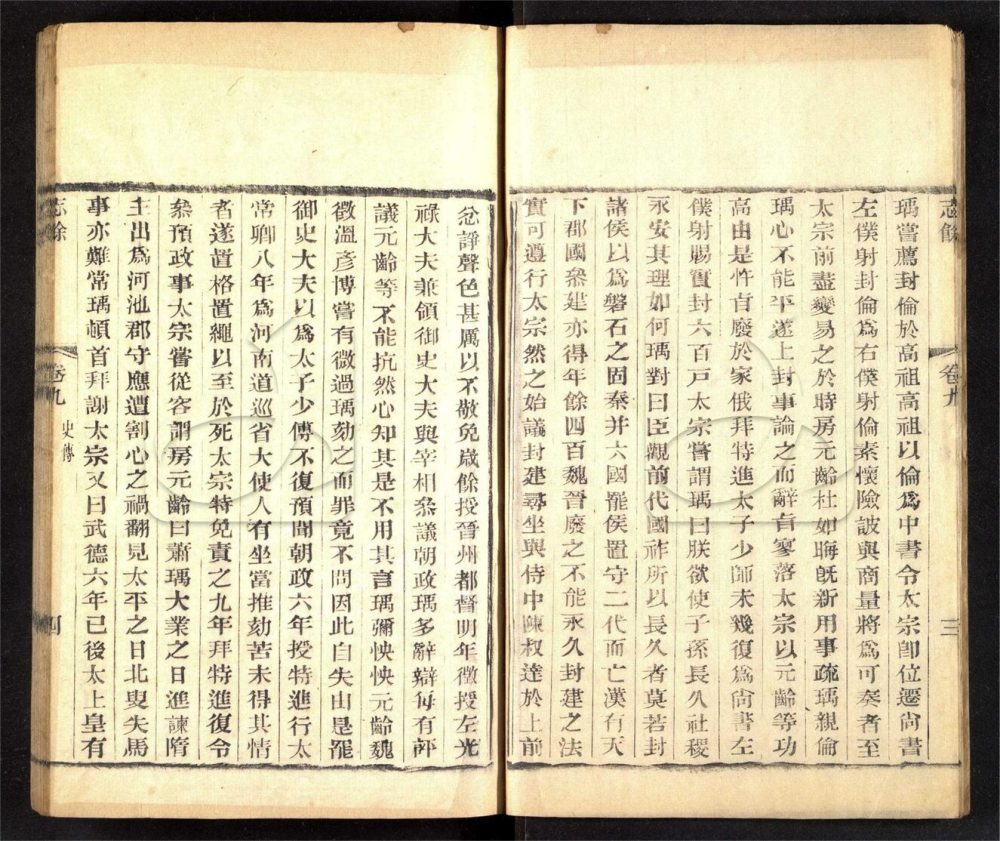 志餘
卷九
三
瑀嘗薦封倫於高祖高祖以倫爲中書令太宗卽位遷尚書
左僕射封倫爲右僕射倫素懷險詖與商量將爲可奏者至
太宗前盡變易之於時房元齡杜如晦旣新用事疏瑀親倫
瑀心不能平遂上封事論之而辭旨寥落太宗以元齡等功
高由是忤旨廢於家俄拜特進太子少師未幾復爲尚書左
僕射賜實封六百戸太宗嘗謂瑀曰朕欲使子孫長久社稷
永安其理如何瑀對曰臣觀前代國祚所以長久者莫若封
諸侯以爲磐石之固秦并六國罷侯置守二代而亡漢有天
下郡國叅建亦得年餘四百魏晉廢之不能永久封建之法
實可遵行太宗然之始議封建尋坐與侍中陳叔達於上前
忿諍聲色甚厲以不敬免歲餘授晉州都督明年徵授左光
祿大夫兼領御史大夫與宰相叅議朝政瑀多辭辯每有評
議元齡等不能抗然心知其是不用其言瑀彌怏怏元齡魏
徵溫彥博嘗有微過瑀劾之而罪竟不問因此自失由是罷
御史大夫以爲太子少傅不復預聞朝政六年授特進行太
常卿八年爲河南道巡省大使人有坐當推劾苦未得其情
者遂置格置繩以至於死太宗特免責之九年拜特進復令
叅預政事太宗嘗從容謂房元齡曰蕭瑀大業之日進諫隋
主出爲河池郡守應遭割心之禍翻見太平之日北叟失馬
事亦難常瑀頓首拜謝太宗又曰武德六年已後太上皇有
志餘
卷九
史傳
四